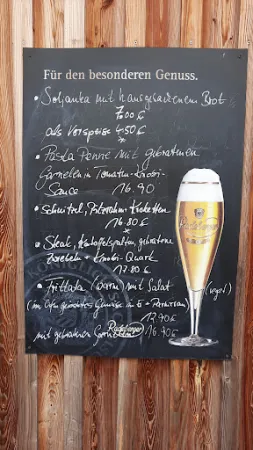 Für den besonderen Genuss.
• Soljanka mit hausgebackenem Brot
7.00 €
als Vorspeise 4.50 €
*
• Pasta Penne mit gebratenen
Garnelen in Tomaten-
Sauce 16.90
*
• Schnitzel, Pilzrahm, Kroketten
16.80 €
*
• Steak, Kartoffelspalten, gebratene
Zwiebeln + Quark
17.80 €
• Frittata (warm) mit Salat
(veget)
(im Ofen Gemüse m. Ei + Parmesan)
12.90 €
mit gebratenen Garnelen 16.90 €
Radeberger
Radeberger